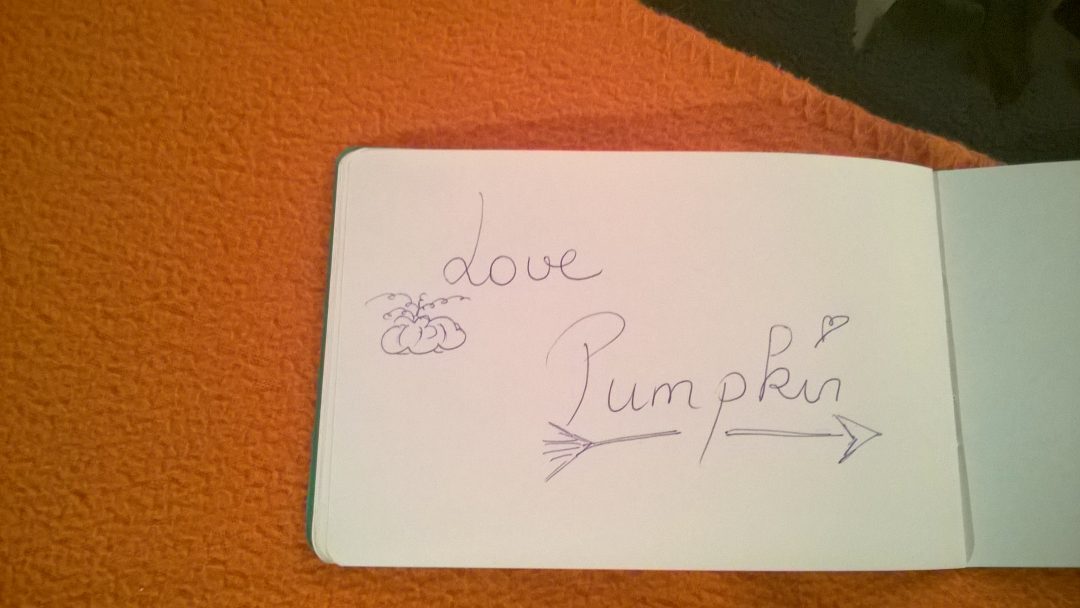 Love
Pumpkin